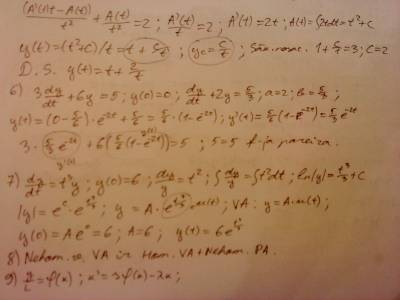 (A'(t)t-A(t))/t² + A(t)/t² = 2 ; A'(t)/t = 2 ; A'(t) = 2t ; A(t) = ∫2tdt = t²+C
y(t) = (t²+C)/t = t + C/t ; y_c = C/t ; 1+C/1=3 ; C=2
D.S. y(t) = t + 2/t
6) 3 dy/dt + 6y = 5 ; y(0)=0 ; dy/dt + 2y = 5/3 ; a=2 ; b=5/3 ;
y(t) = (0-5/6)·e^-2t + 5/6 = 5/6·(1-e^-2t) ; y'(t) = 5/6(1-e^-2t)' = 5/3 e^-2t
3·(5/3 e^-2t) + 6(5/6(1-e^-2t)) = 5 ; 5=5 f-ja pareiza.
y'(t) y(t)
7) dy/dt = t²y ; y(0)=6 ; dy/y = t² ; ∫dy/y = ∫t²dt ; ln|y| = t³/3 + C
|y| = e^c·e^t³/3 ; y = A·e^t³/3 ; VA: y = A·u(t) ;
y(0) = Ae⁰ = 6 ; A=6 ; y(t) = 6e^t³/3
8) Neham. VA ir Hom. VA + Neham. PA.
9) x/2 = f(x) ; x' = 3f(x) - 2x ;